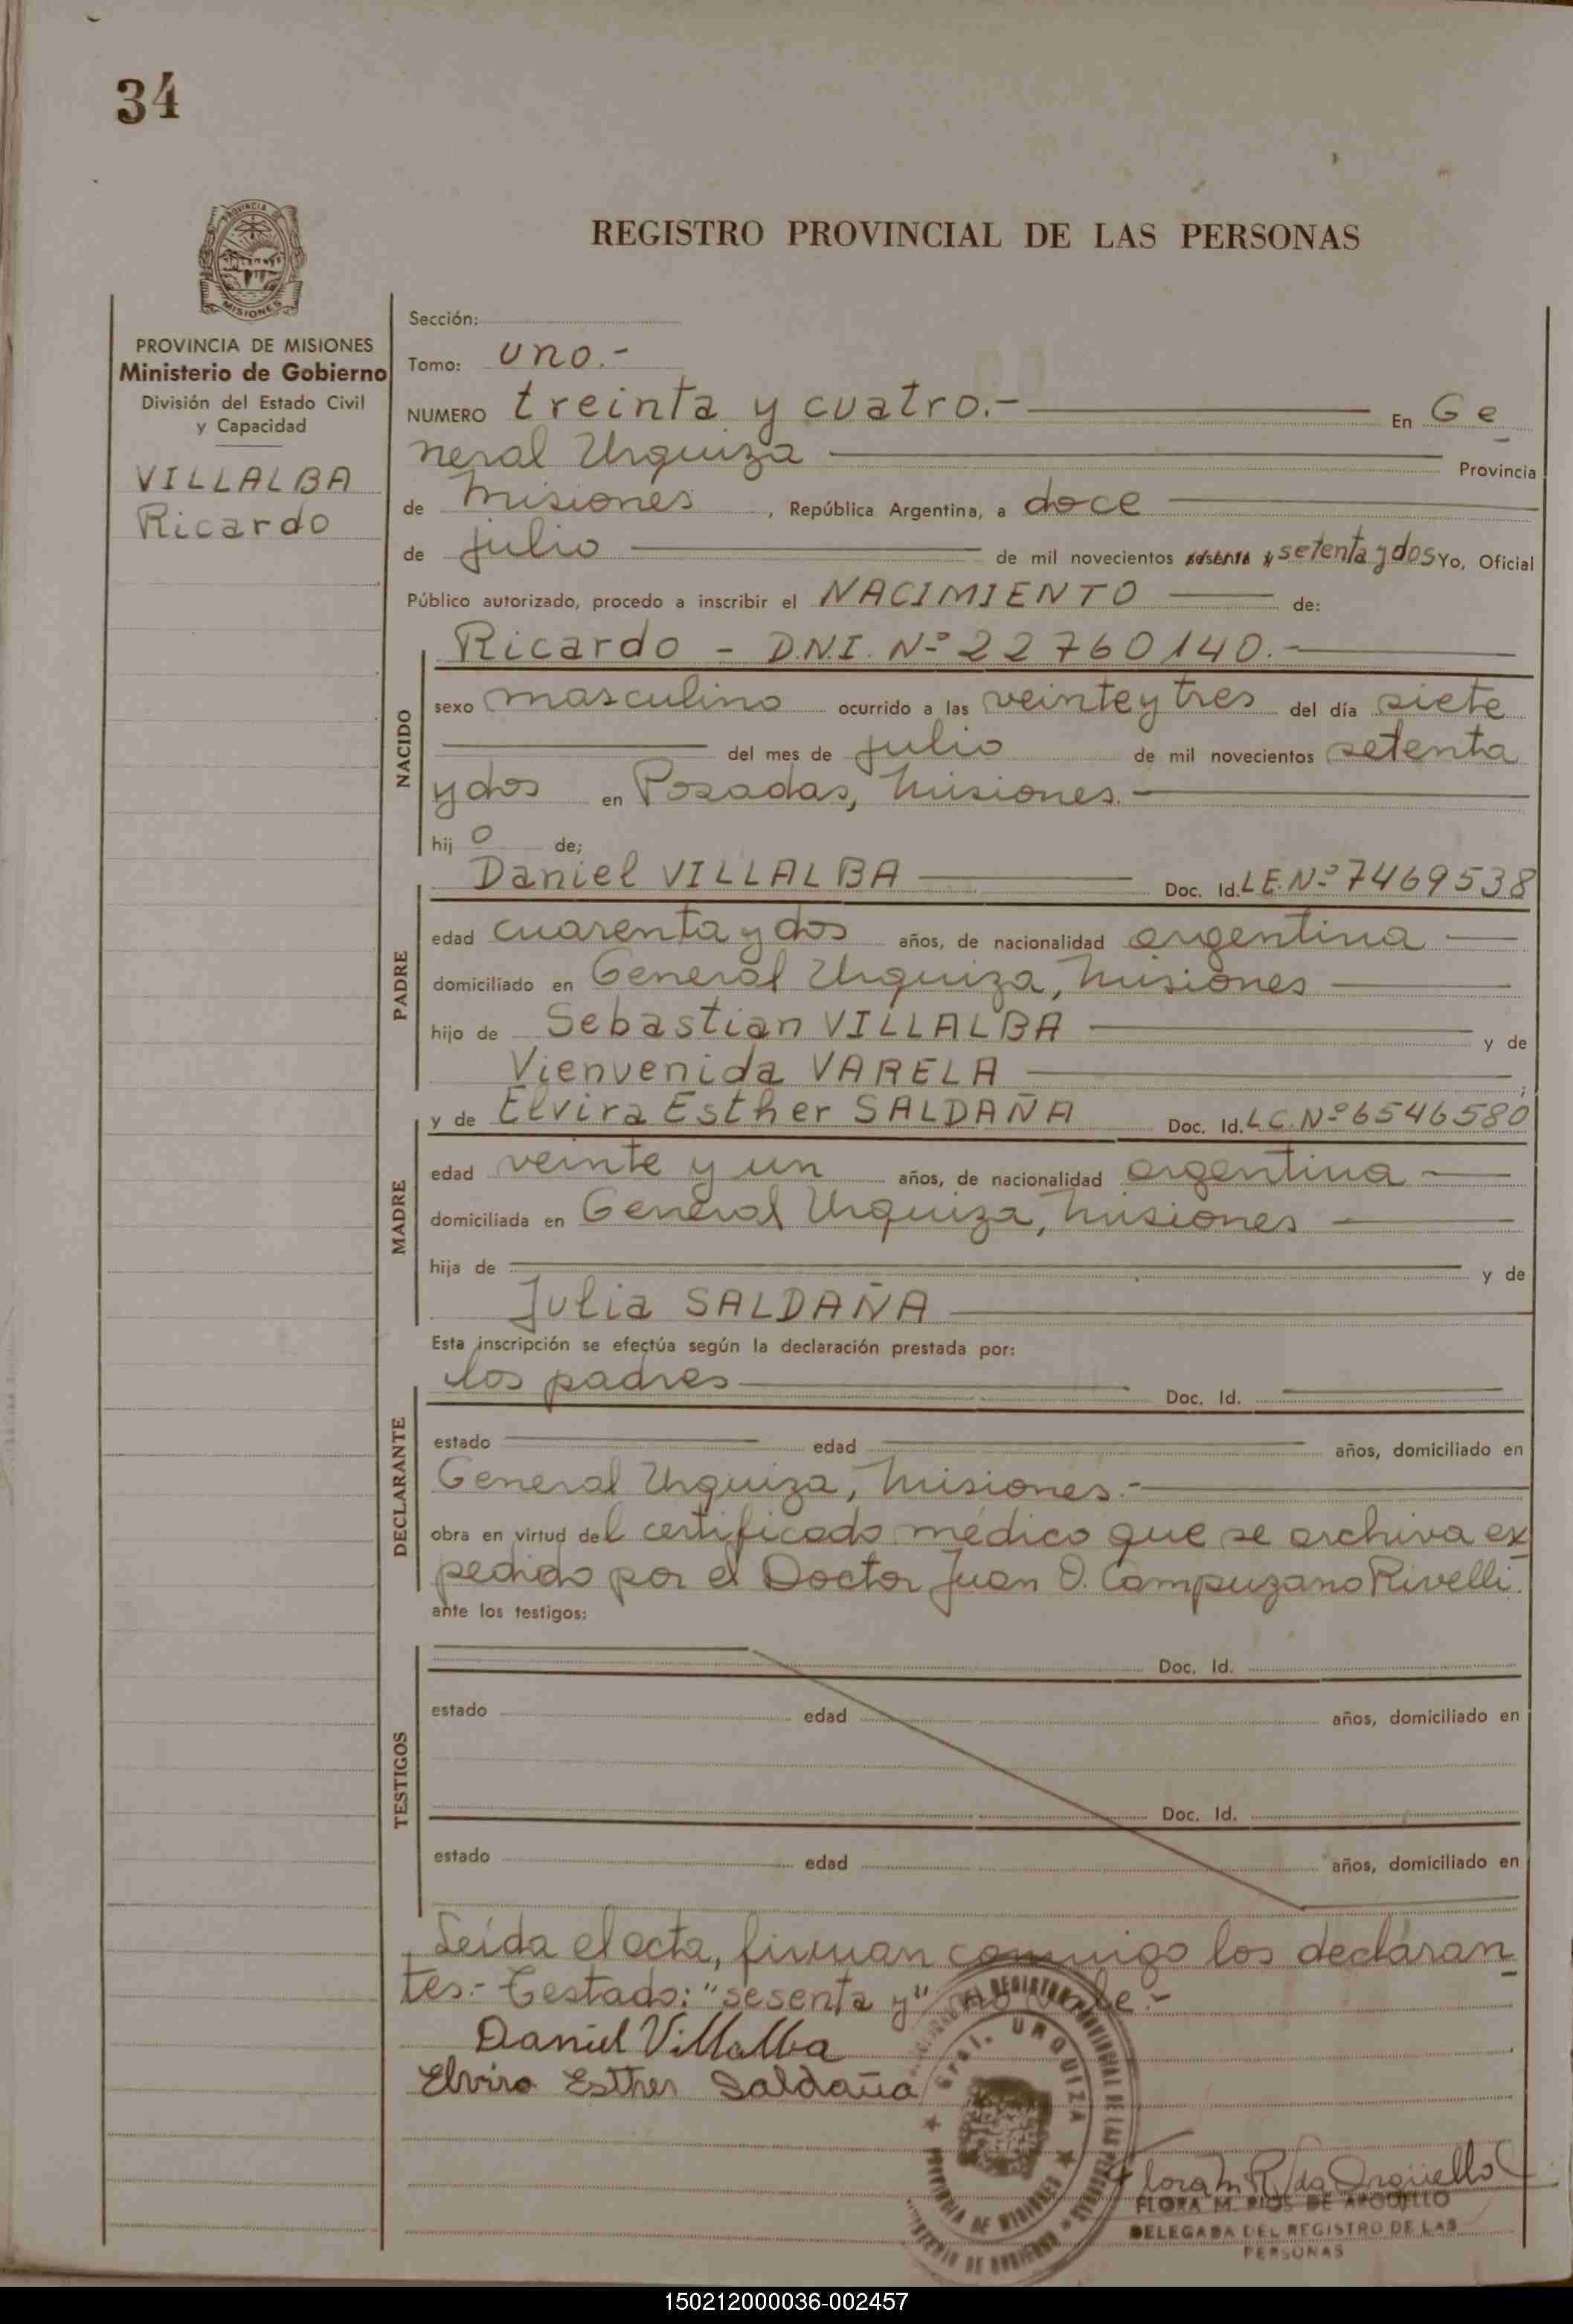 34
PROVINCIA DE
MISIONES
REGISTRO PROVINCIAL DE LAS PERSONAS
PROVINCIA DE MISIONES
Ministerio de Gobierno
División del Estado Civil
y Capacidad
VILLALBA
Ricardo
Sección:
Tomo: uno.-
NUMERO treinta y cuatro.- En Ge
neral Urquiza Provincia
de Misiones, República Argentina, a doce
de julio de mil novecientos sesenta y setenta y dos Yo, Oficial
Público autorizado, procedo a inscribir el NACIMIENTO de:
NACIDO
Ricardo - D.N.I. Nº 22760140.-
sexo masculino ocurrido a las veinte y tres del día siete
del mes de julio de mil novecientos setenta
y dos en Posadas, Misiones.-
hij o de;
PADRE
Daniel VILLALBA Doc. Id. L.E. Nº 7469538
edad cuarenta y dos años, de nacionalidad argentina
domiciliado en General Urquiza, Misiones
hijo de Sebastian VILLALBA y de
Vienvenida VARELA ;
MADRE
y de Elvira Esther SALDAÑA Doc. Id. L.C. Nº 6546580
edad veinte y un años, de nacionalidad argentina
domiciliada en General Urquiza, Misiones
hija de y de
Julia SALDAÑA
Esta inscripción se efectúa según la declaración prestada por:
DECLARANTE
los padres Doc. Id.
estado edad años, domiciliado en
General Urquiza, Misiones.-
obra en virtud del certificado médico que se archiva ex
pedido por el Doctor Juan O. Campuzano Rivelli.
ante los testigos:
TESTIGOS
Doc. Id.
estado edad años, domiciliado en
Doc. Id.
estado edad años, domiciliado en
Leída el acta, firman conmigo los declaran
tes.- Testado: "sesenta y" no vale.-
Daniel Villalba
Elvira Esther Saldaña
REGISTRO PROVINCIAL DE LAS PERSONAS
Gral. URQUIZA
PROVINCIA DE MISIONES
MINISTERIO DE GOBIERNO
Flora M. R. de Argüello
FLORA M. RIOS DE ARGUELLO
DELEGADA DEL REGISTRO DE LAS
PERSONAS
150212000036-002457